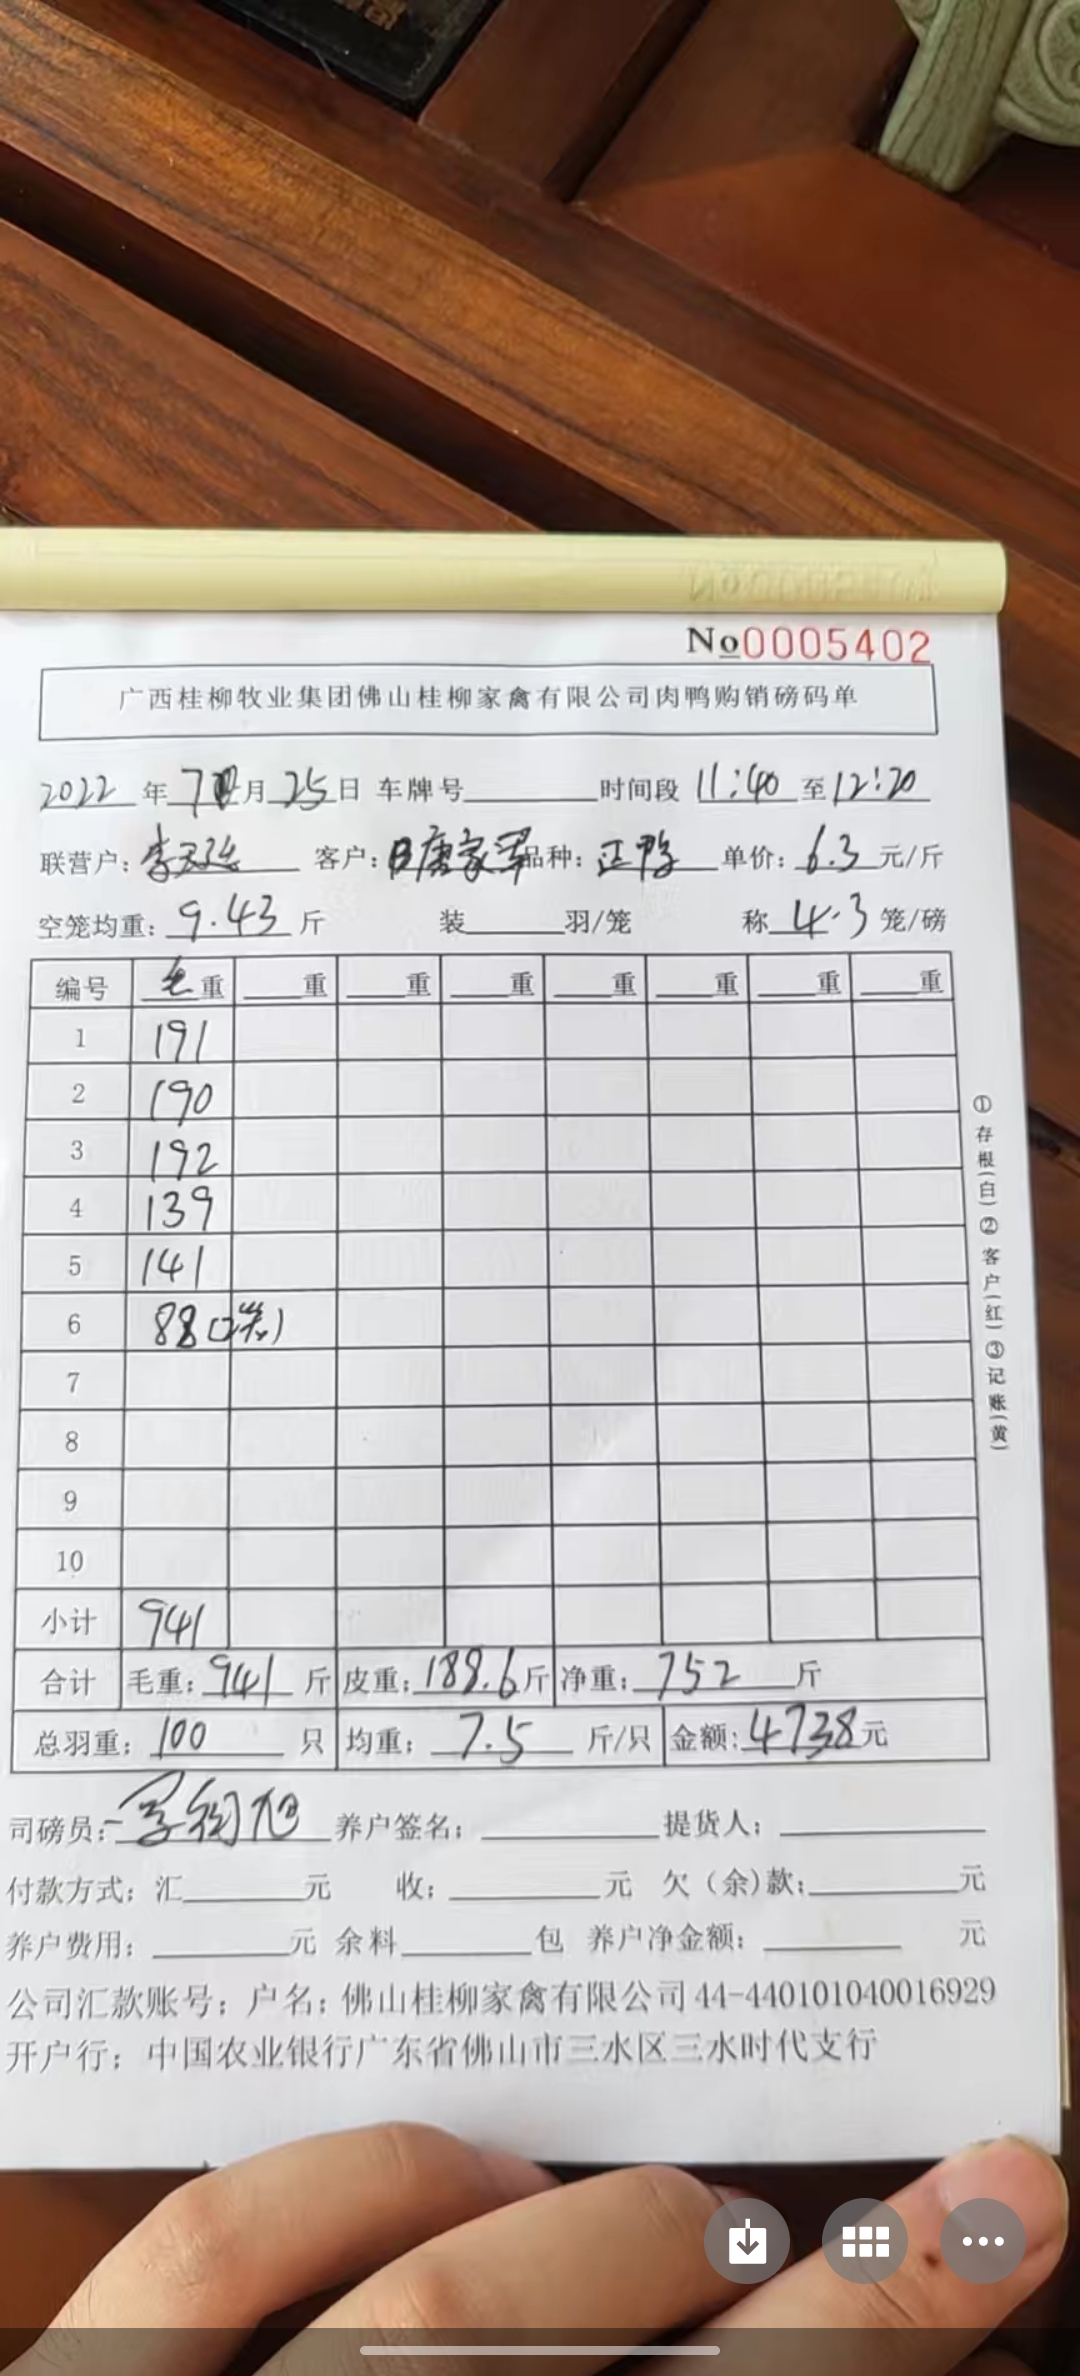 No0005402
广西桂柳牧业集团佛山桂柳家禽有限公司肉鸭购销磅码单
2022年7月25日 车牌号 时间段 11:40 至 12:20
联营户: 李 客户: 唐家军 品种: 正鸭 单价: 6.3 元/斤
空笼均重: 9.43 斤 装 羽/笼 称 4.3 笼/磅
编号 毛重 重 重 重 重 重 重 重
1 191
2 190
3 192
4 139
5 141
6 88(2笼)
7
8
9
10
小计 941
合计 毛重: 941 斤 皮重: 188.6斤 净重: 752 斤
总羽重: 100 只 均重: 7.5 斤/只 金额: 4738元
司磅员: 养户签名: 提货人:
付款方式: 汇 元 收: 元 欠(余)款: 元
养户费用: 元 余料 包 养户净金额: 元
公司汇款账号: 户名: 佛山桂柳家禽有限公司 44-440101040016929
开户行: 中国农业银行广东省佛山市三水区三水时代支行
①存根(白)②客户(红)③记账(黄)